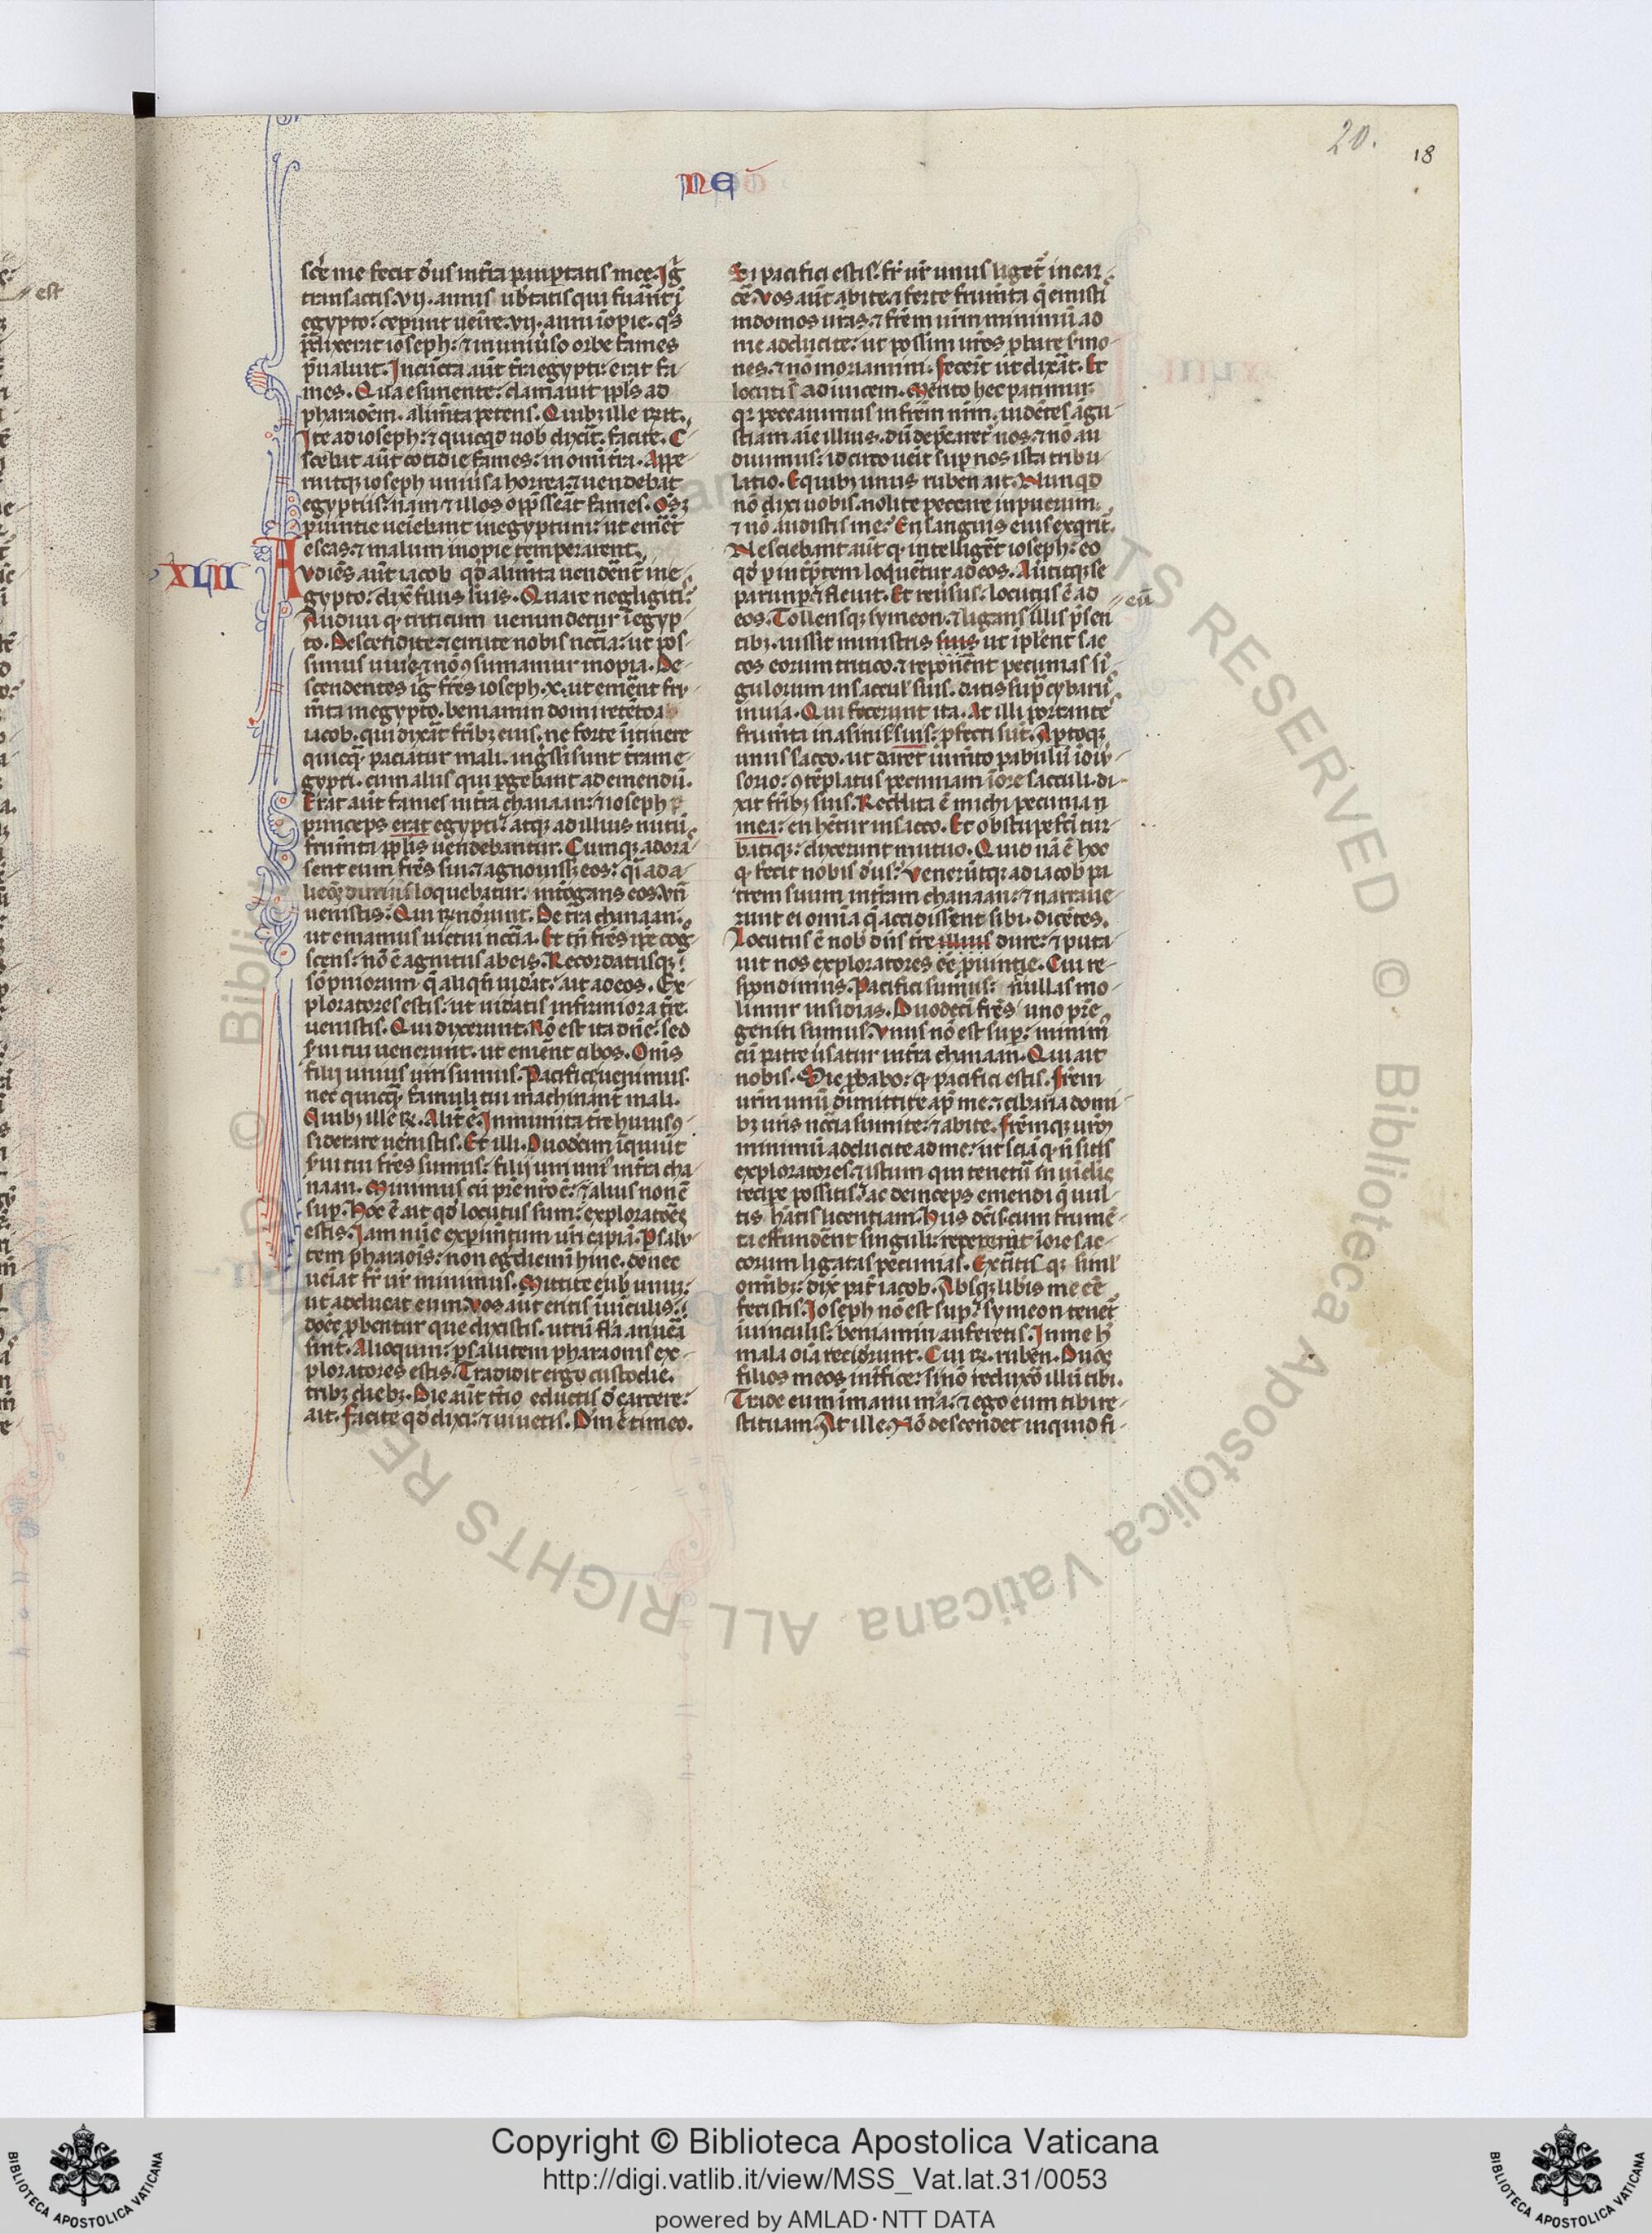 20.
18
NE
est
sce me fecit ds in tra pauptatis mee. Ig
transactis. vij. annis ubtatis qui fuant i
egypto: cepunt ueire. vij. anni iopie. qs
pdixerat ioseph: ⁊ in uniuso orbe fames
pualuit. In cuncta aut tra egypti: erat fa
mes. Qua esuriente: clamauit ppls ad
pharaoem. alimta petens. Quibȝ ille rñt.
Ite ad ioseph: ⁊ quicqd uob dixit. facite. C
scebat aut cotidie fames: in omi tra. Appe
ruitqȝ ioseph uniusa horrea: ⁊ uendebat
egyptiis: nam ⁊ illos oppsseat fames. Osȝ
puintie ueiebant in egyptum: ut emet
escas: ⁊ malum inopie temperarent.
XLII
Avdies aut iacob qd alimta uendent in e
gypto: dix filiis suis. Quare negligitis
Audiui q triticum uenundetur i egyp
to. Descendite: ⁊ emite nobis nccia: ut pos
simus uiue: ⁊ no ɔsumamur inopia. De
scendentes ig fres ioseph. x. ut ement fru
mta in egypto. beniamin domi reteto a
iacob. qui dixat fribȝ eius. ne forte i itinere
quicq patiatur mali. ingssi sunt tram e
gypti. cum aliis qui pgebant ad emendu.
Erat aut fames in tra chanaan: ⁊ ioseph
princeps erat egypti: atqȝ ad illius nutu
frumta pplis uendebantur. Cumqȝ adora
sent eum fres sui: ⁊ agnouissȝ eos: qi ad a
lieos durius loquebatur. intogans eos. Vn
uenistis: Qui rnderunt. De tra chanaan:
ut emamus uictui nccia. Et tn fres ipe cog
scens: no e agnitus ab eis. Recordatusqȝ
sopniorum q aliqn uidat: ait ad eos. Ex
ploratores estis: ut uidatis infirmiora tre
uenistis. Qui dixerunt. No est ita dne: sed
sui tui uenerunt. ut ement cibos. Ons
filij unius uiri sumus. Pacifice uenimus.
nec quicq famuli tui machinant mali.
Quibȝ ille R. Alit e. Inmunita tre huius ɔ
siderare uenistis. Et illi. Duodecim iquiut
sui tui fres sumus: filij uiri uni in tra cha
naan. Minimus cu pre nro e: ⁊ alius non e
sup. Hoc e ait qd locutus sum: exploratoes
estis. Iam nuc expimtum uri capia. P salu
tem pharaois: non egdiemi hinc. donec
ueiat fr ur minimus. Mittite e uob unum:
ut adducat eum: vos aut eritis i uiculis.
doec pbentur que dixistis. utru fla an uea
sint. Alioquin: p salutem pharaonis ex
ploratores estis. Tradidit ergo custodie.
tribȝ diebȝ. Die aut tertio eductis d carcere:
ait. Facite qd dixi: ⁊ uiuetis. Dm e timeo.
Si pacifici estis: fr ur unus liget in car
ce. Vos aut abite: ⁊ ferte frumta q emisti
in domos uras: ⁊ frem urm minimu ad
me adducite: ut possim uros pbare smo
nes. ⁊ no moriamini. Fecert ut dixat. Et
locuti s ad inuicem. Merito hec patimur:
qr peccauimus in frem nrm. uidetes agu
stiam aie illius. du depcaret nos: ⁊ no au
diuimus: idcirco ueit sup nos ista tribu
latio. E quibȝ unus ruben ait. Nunqd
no dixi uobis. nolite peccare in puerum:
⁊ no audistis me: En sanguis eius exqrit.
Nesciebant aut q intelliget ioseph: eo
qd p intptem loquetur ad eos. Auititqȝ se
parump: ⁊ fleuit. Et reusus: locutus e ad
eu
eos. Tollensqȝ symeon. ⁊ ligans illis psen
tibȝ. iussit ministris suis ut iplent sac
cos eorum tritico. ⁊ reponent pecunias si
gulorum in saccul suis. datis sup cybarii
in uia. Qui fecerunt ita. At illi portante
frumta in asinis suis: pfecti sut. Aptoqȝ
unus sacco. ut daret iumto pabulu i diu
sorio: ɔteplatus pecuniam i ore sacculi. di
xit fribȝ suis. Reddita e michi pecunia n
mea: en hetur in sacco. Et obstupefti tur
batiqȝ: dixerunt mutuo. Quid na e hoc
q fecit nobis ds: Venerutqȝ ad iacob pa
trem suum in tram chanaan: ⁊ narraue
runt ei omia q accidissent sibi. dicetes.
Locutus e nob dns tre illius dure: ⁊ puta
uit nos exploratores ee puintie. Cui re
spondimus. Pacifici sumus: nullas mo
limur insidias. Duodeci fres uno pre
geniti sumus. Vnus no est sup: minim
cu patre usatur in tra chanaan. Qui ait
nobis. Sic pbabo: q pacifici estis. Frem
urm unu dimittite ap me: ⁊ cibaria domi
bȝ uris nccia sumite: ⁊ abite. Fremqȝ urm
minimu adducite ad me: ut scia q n sitis
exploratores: ⁊ istum qui tenetu in uiclis
recipe possitis: ac deinceps emendi q uul
tis hatis licentiam. His dcis. cum frume
ta effundent singuli: repererunt i ore sac
corum ligatas pecunias. Extitis qȝ siml
omibȝ: dix pat iacob. Absqȝ libis me ee
fecistis. Ioseph no est sup: symeon tenet
i uinculis: beniamin auferetis. In me h
mala oia reciderunt. Cui R. ruben. Duos
filios meos intfice: si no reduxo illu tibi.
Trade eum i manu ma: ⁊ ego eum tibi re
stituam. At ille. No descendet inquid fi
Copyright © Biblioteca Apostolica Vaticana
http://digi.vatlib.it/view/MSS_Vat.lat.31/0053
powered by AMLAD·NTT DATA
BIBLIOTECA APOSTOLICA VATICANA
BIBLIOTECA APOSTOLICA VATICANA
© Biblioteca Apostolica Vaticana ALL RIGHTS RESERVED